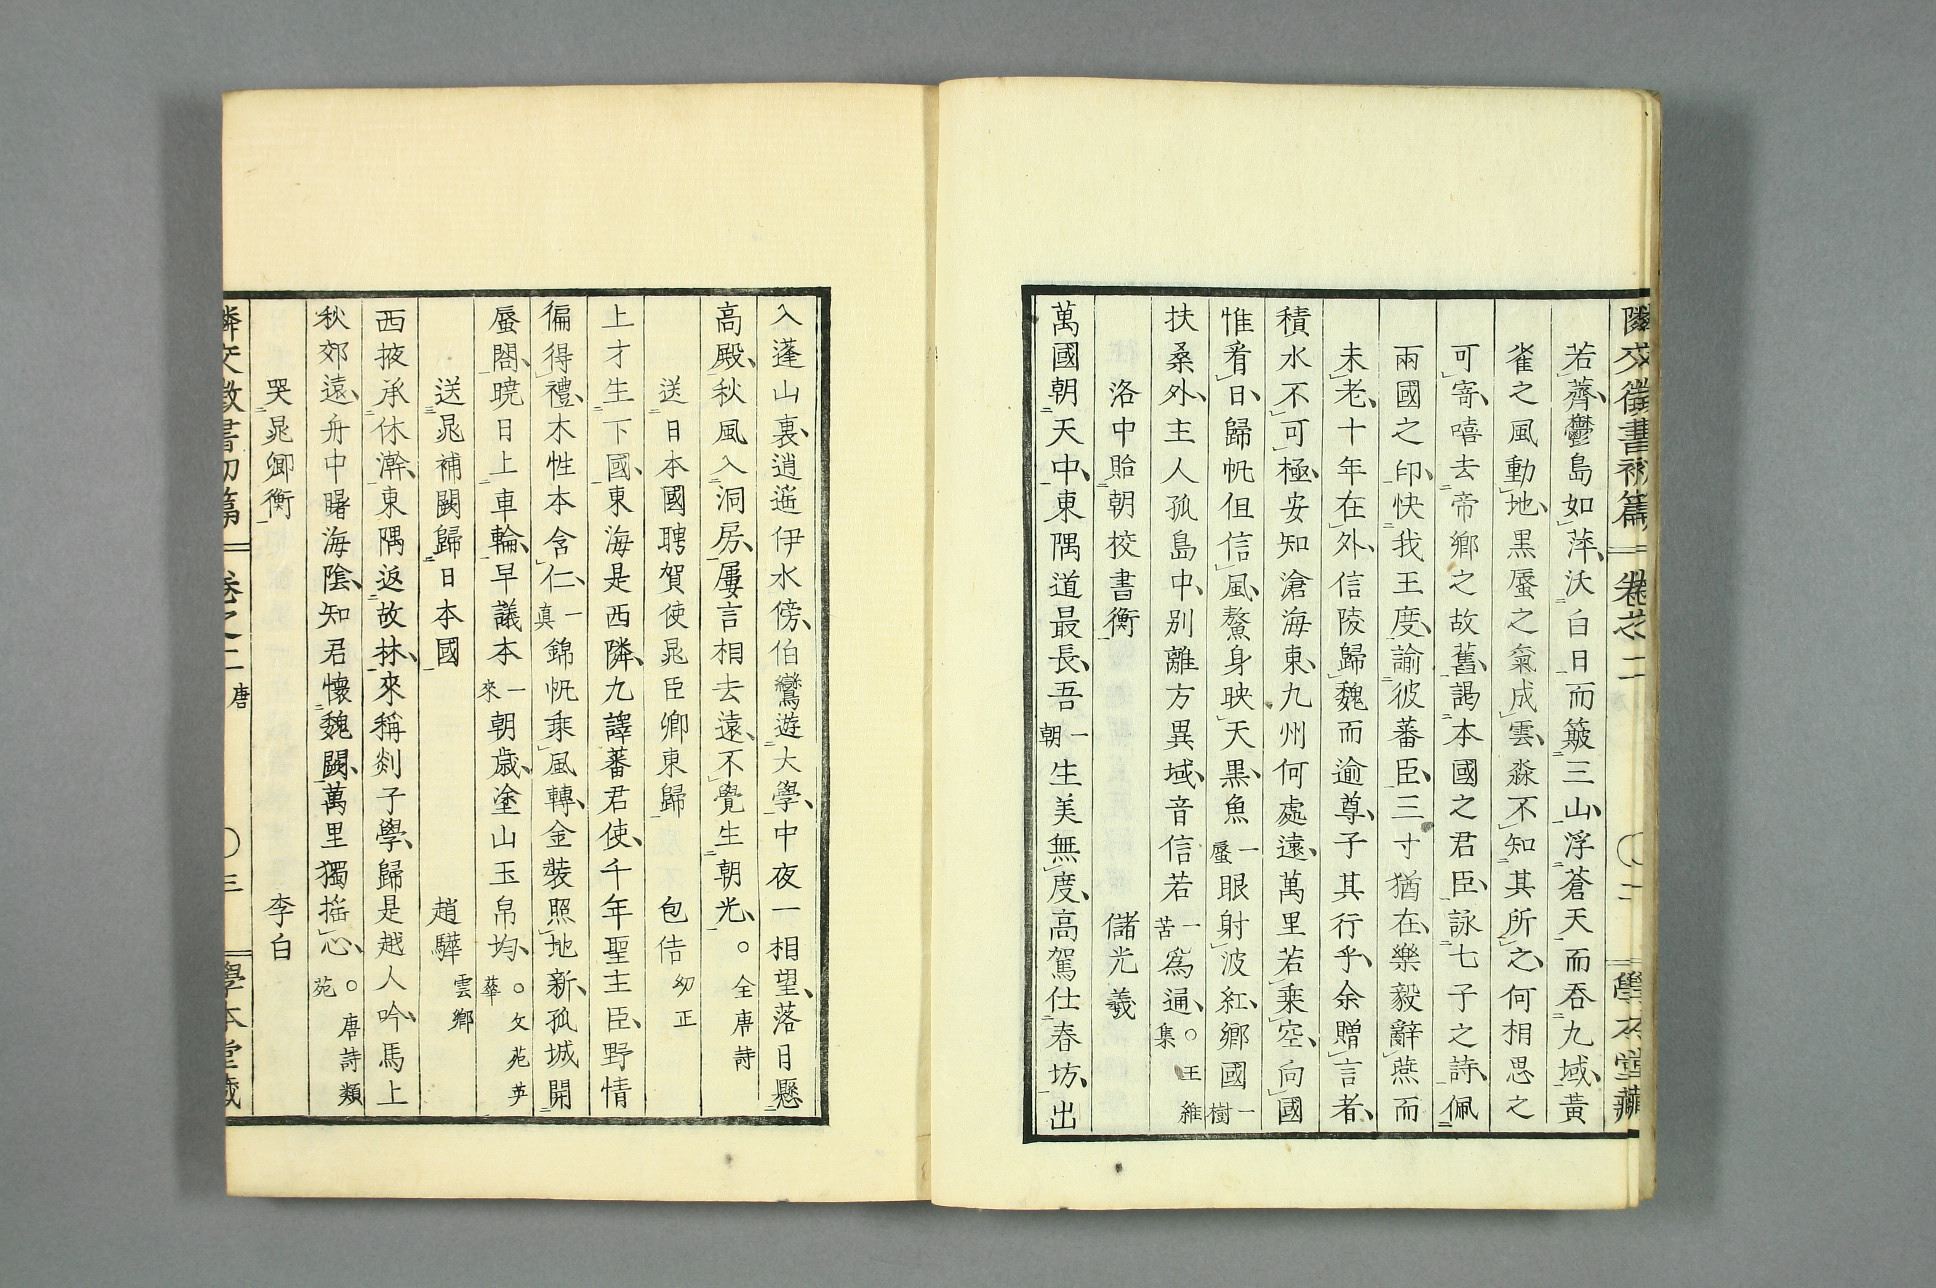 隣交徵書初篇 卷之二 〇二 學本堂藏
若薺鬱島如萍沃白日而簸三山浮蒼天而吞九域黃
雀之風動地黒蜃之氣成雲淼不知其所之何相思之
可寄嘻去帝鄉之故舊謁本國之君臣詠七子之詩佩
兩國之印快我王度諭彼蕃臣三寸猶在樂毅辭燕而
未老十年在外信陵歸魏而逾尊子其行乎余贈言者
積水不可極安知滄海東九州何處遠萬里若乘空向國
惟看日歸帆但信風鰲身映天黒魚一蜃眼射波紅鄉國一樹
扶桑外主人孤島中別離方異域音信若一苦爲通〇王維集
洛中貽朝校書衡 儲光羲
萬國朝天中東隅道最長吾一朝生美無度高駕仕春坊出
入蓬山裏逍遙伊水傍伯鸞遊大學中夜一相望落日懸
高殿秋風入洞房屢言相去遠不覺生朝光〇全唐詩
送日本國聘賀使晁臣卿東歸 包佶幼正
上才生下國東海是西隣九譯蕃君使千年聖主臣野情
偏得禮木性本含仁一真錦帆乘風轉金裝照地新孤城開
蜃閣曉日上車輪早議本一來朝歳塗山玉帛均〇文苑英華
送晁補闕歸日本國 趙驊雲鄉
西掖承休澣東隅返故林來稱剡子學歸是越人吟馬上
秋郊遠舟中曙海陰知君懷魏闕萬里獨搖心〇唐詩類苑
哭晁卿衡 李白
隣交徵書初篇 卷之二 唐 〇三 學本堂藏